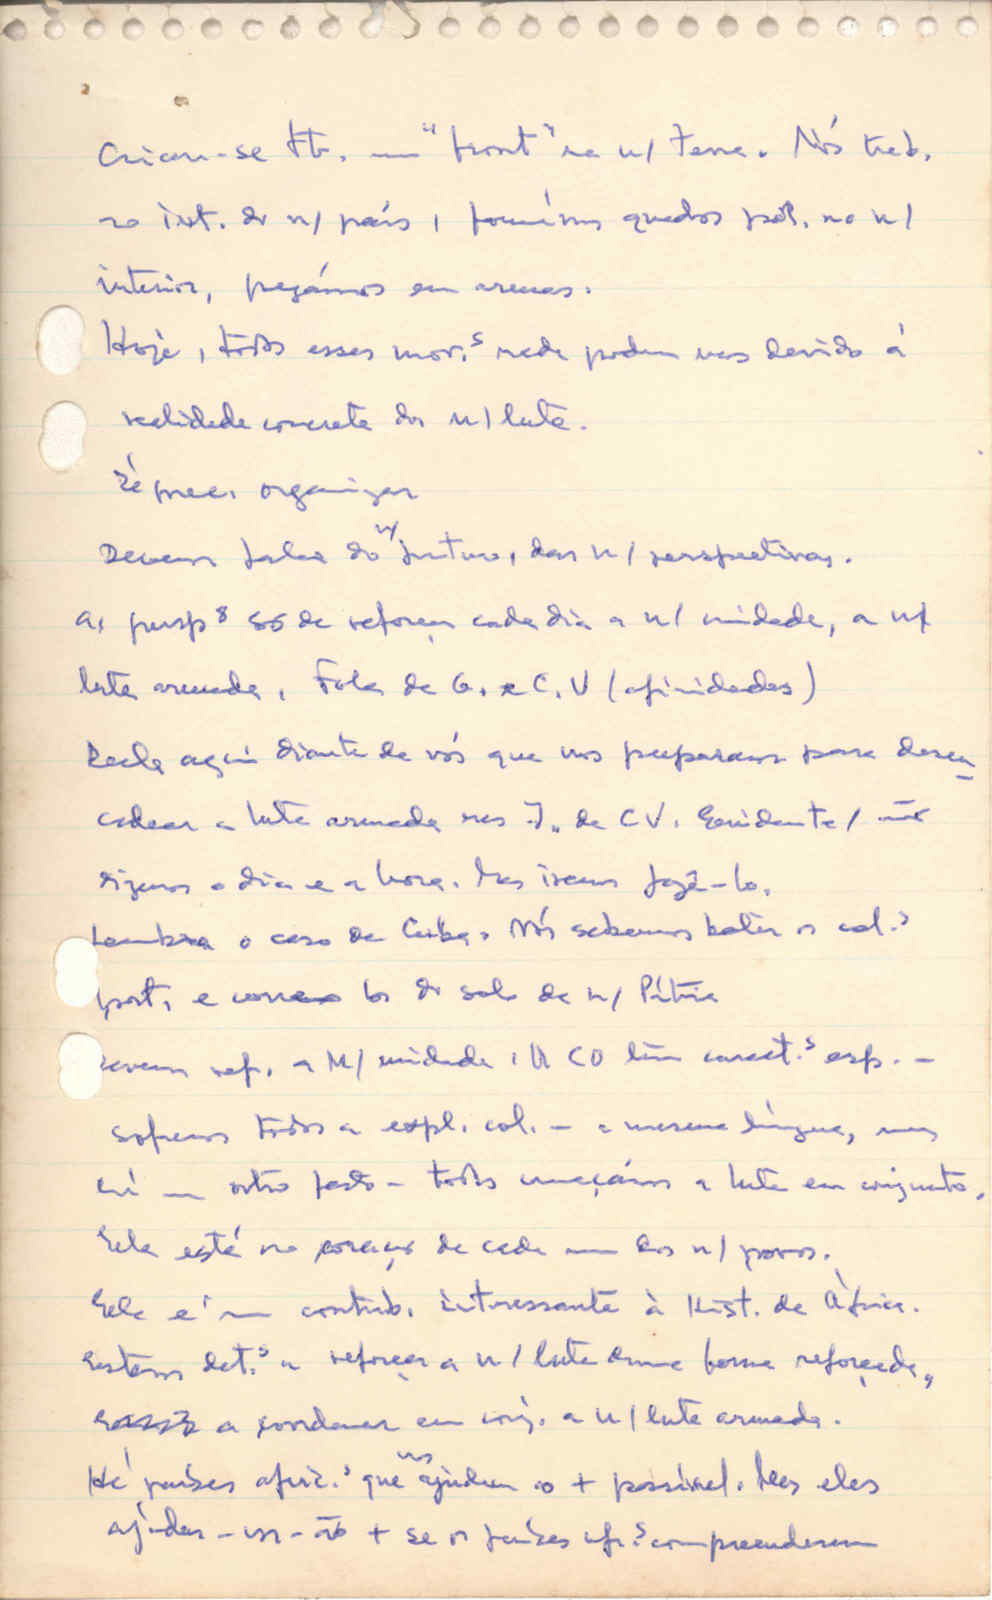 Criou-se tb. um "front" na n/ terra. Nós trab.
no int. do n/ país, formámos quadros pol. no n/
interior, pegámos em armas.
Hoje, todos esses mov.s nada podem nos devido à
realidade concreta da n/ luta.
É prec. organizar
Devem falar do n/ futuro, das n/ perspectivas.
As persp.s são de reforçar cada dia a n/ unidade, a n/
luta armada. Fala de G. e C.V (afinidades)
Decla aqui diante de vós que nos preparamos para desen
cadear a luta armada nas I. de CV. Evidente/ não
dizemos o dia e a hora. Mas iremos fazê-lo.
Lembra o caso de Cuba. Nós sabemos bater os col.s
port. e corrê-los do solo da n/ Pátria
Devem ref. a n/ unidade. A CO têm caract.s esp. -
sofremos todos a expl. col. - a mesma língua, mas
há um outro facto - todos começámos a luta em conjunto.
Ela está no coração de cada um dos n/ povos.
Ela é um contrib. interessante à Hist. de África.
Estamos det.s a reforçar a n/ luta duma forma reforçada,
a coordenar em conj. a n/ luta armada.
Há países afric.s que nos ajudam o + possível. Mas eles
ajudar-nos-ão + se os países afr.s compreenderem